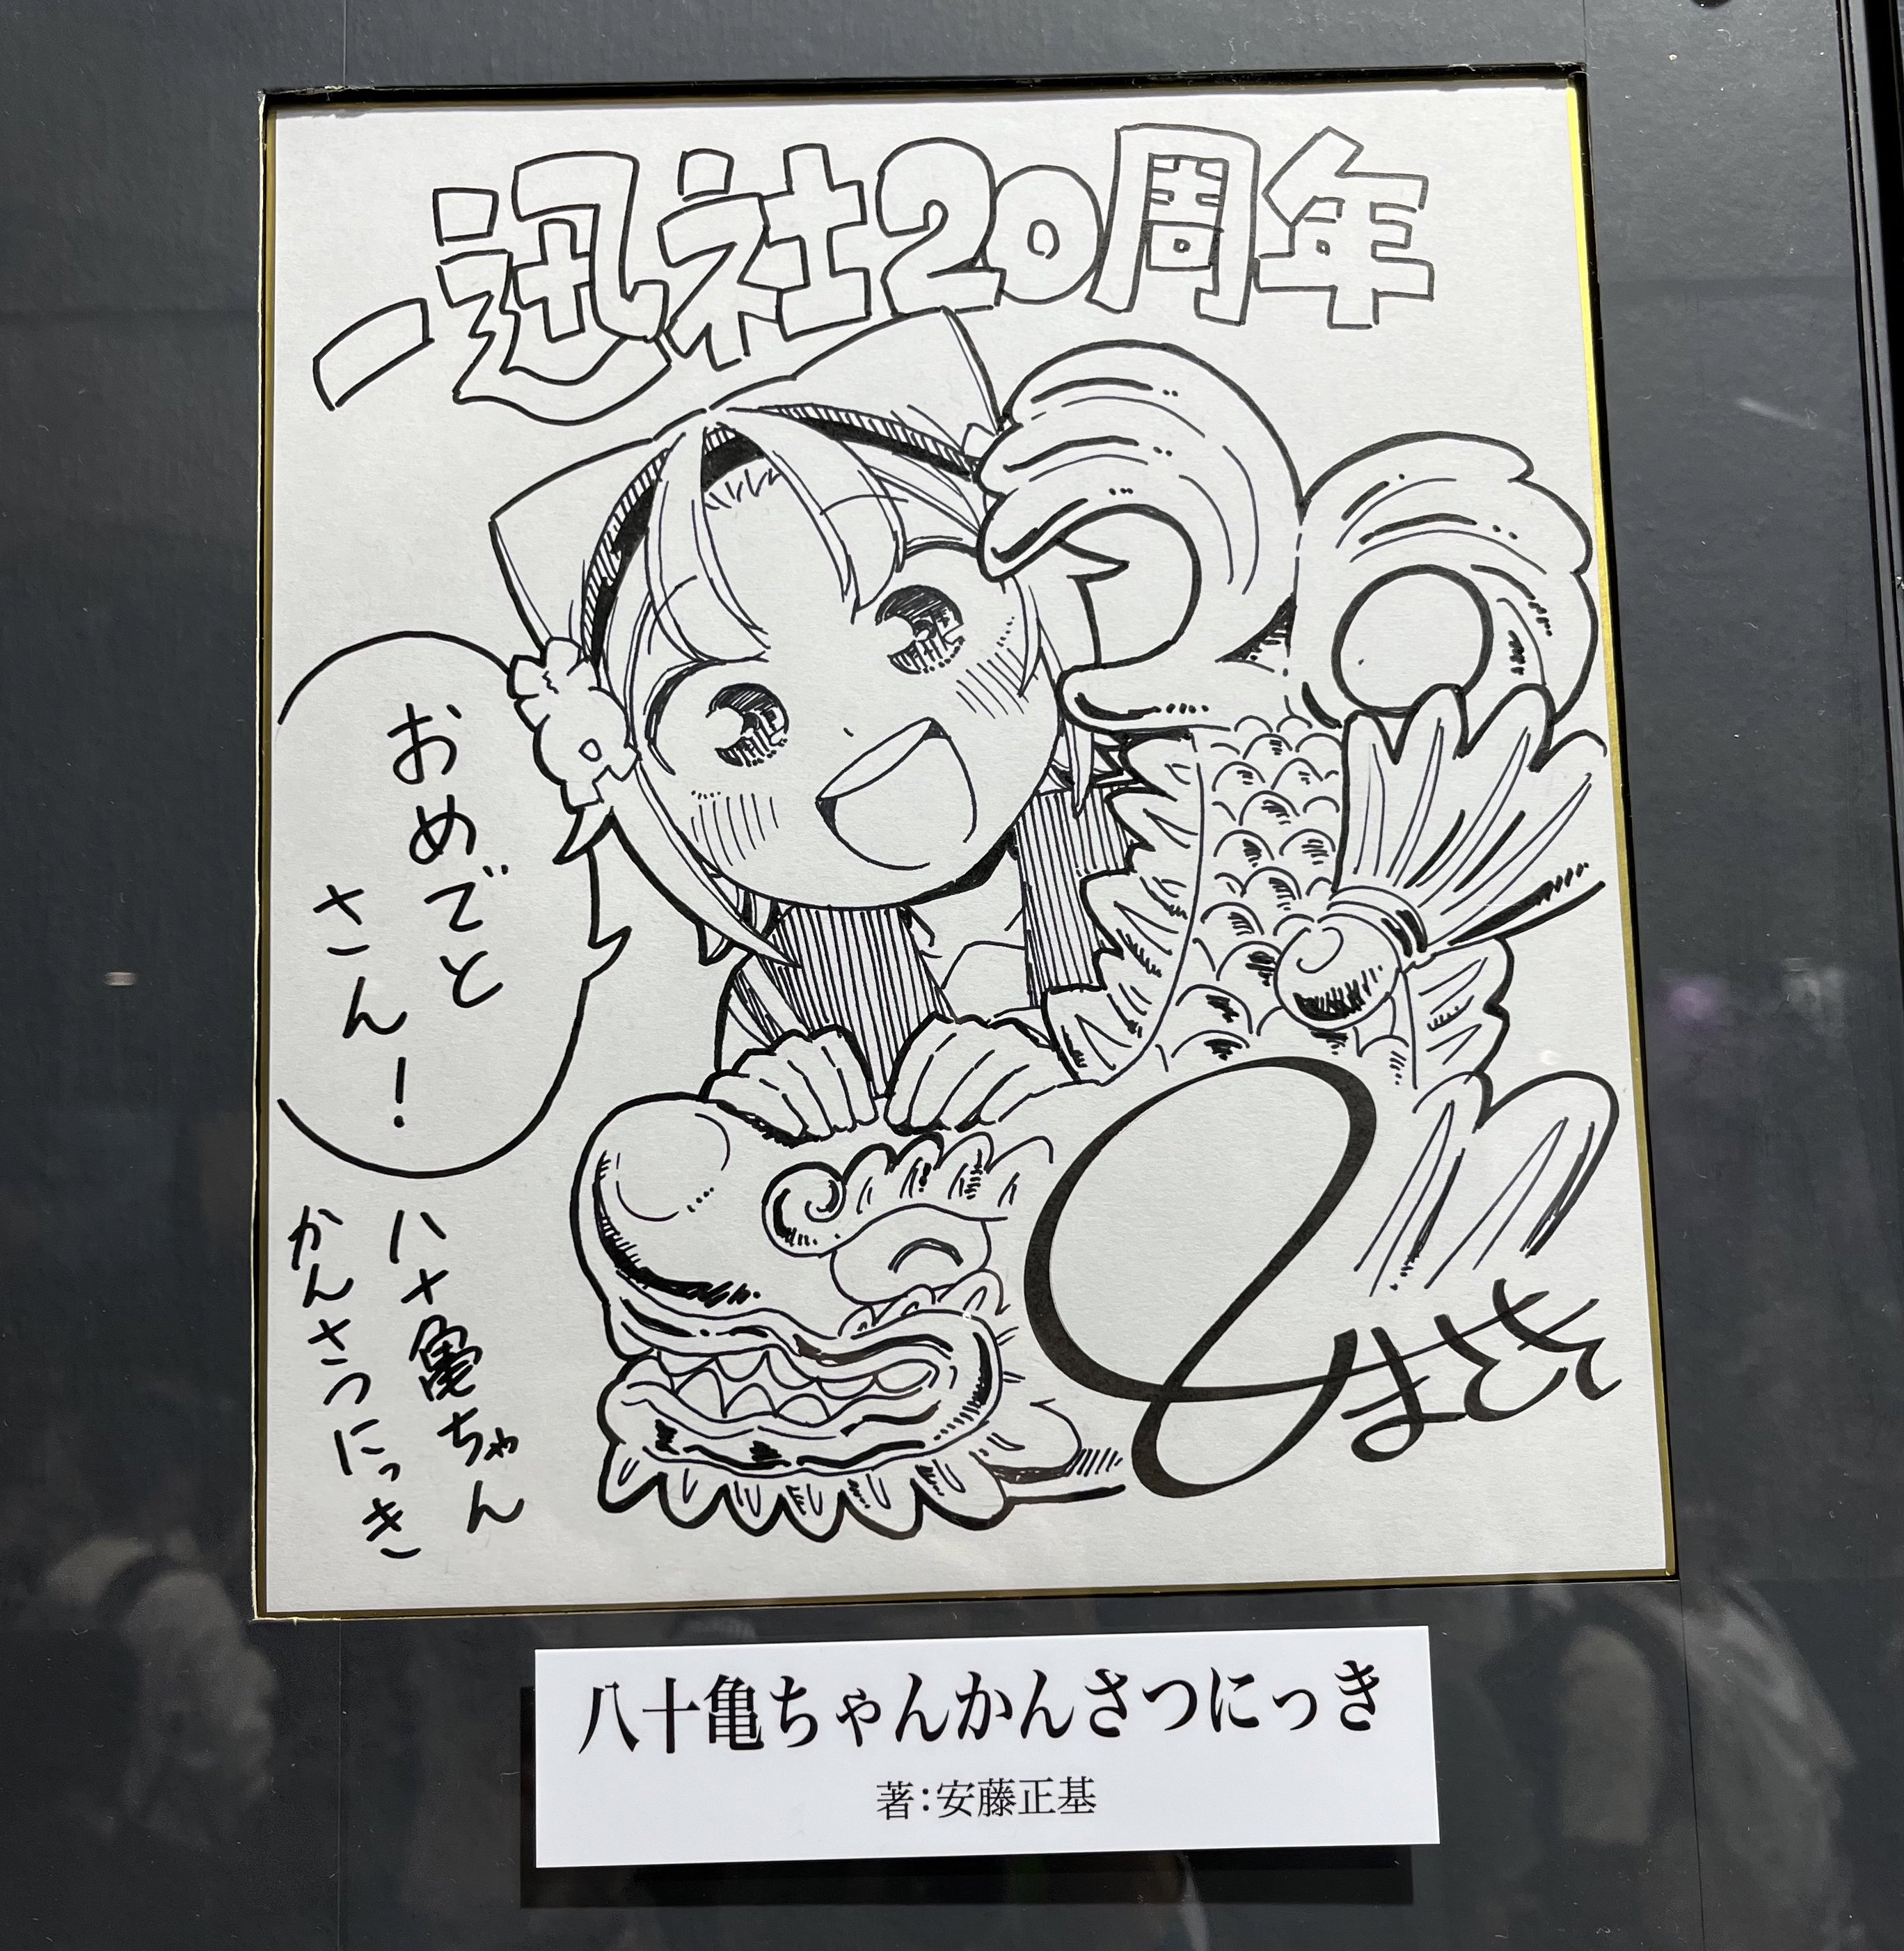 一迅社20周年
おめでと
さん!
八十亀ちゃん
かんさつにっき
八十亀ちゃんかんさつにっき
著:安藤正基